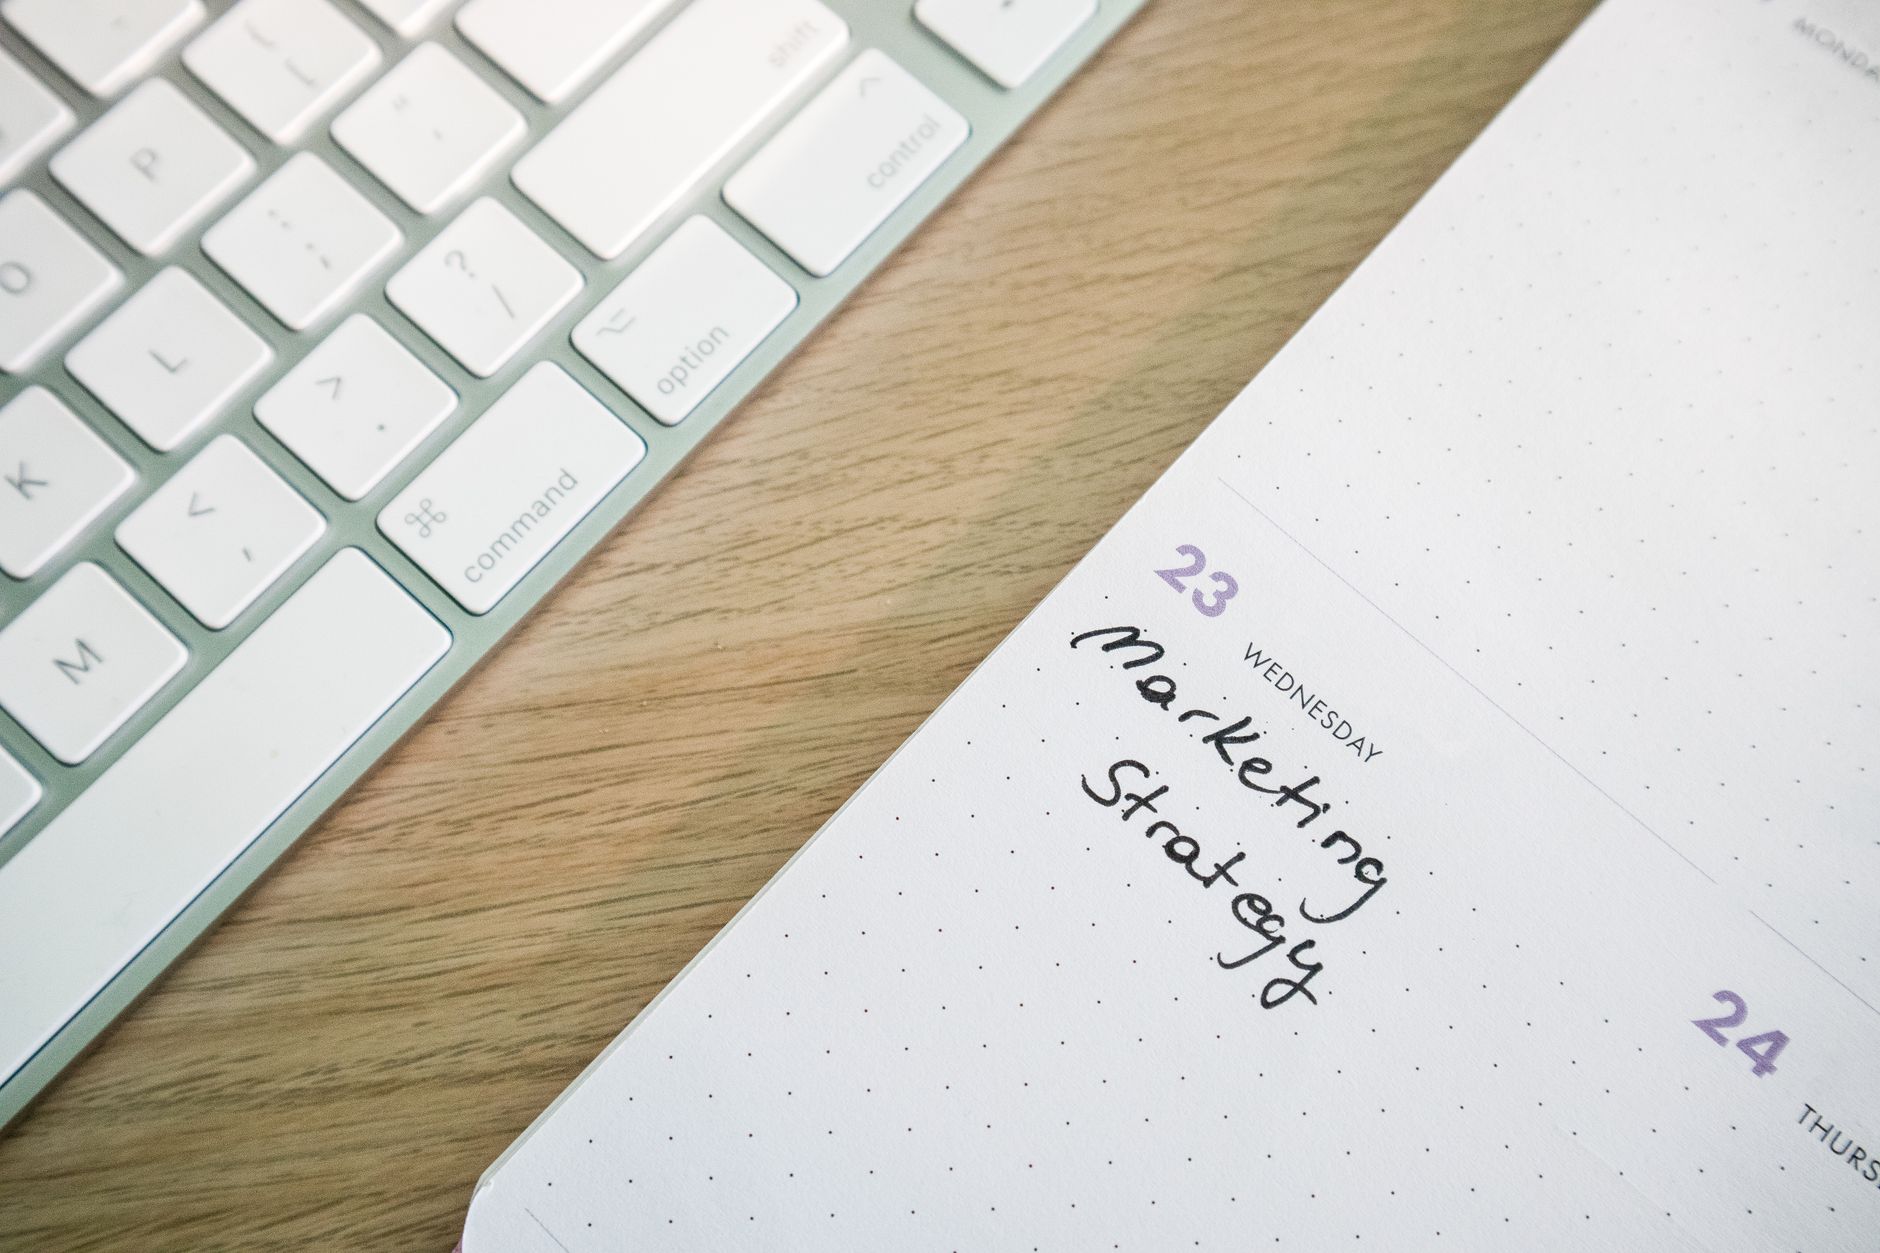 shift
control
P
O
L
? /
option
K
>
.
<
,
command
M
MONDA
23
WEDNESDAY
Marketing
Strategy
24
THURS